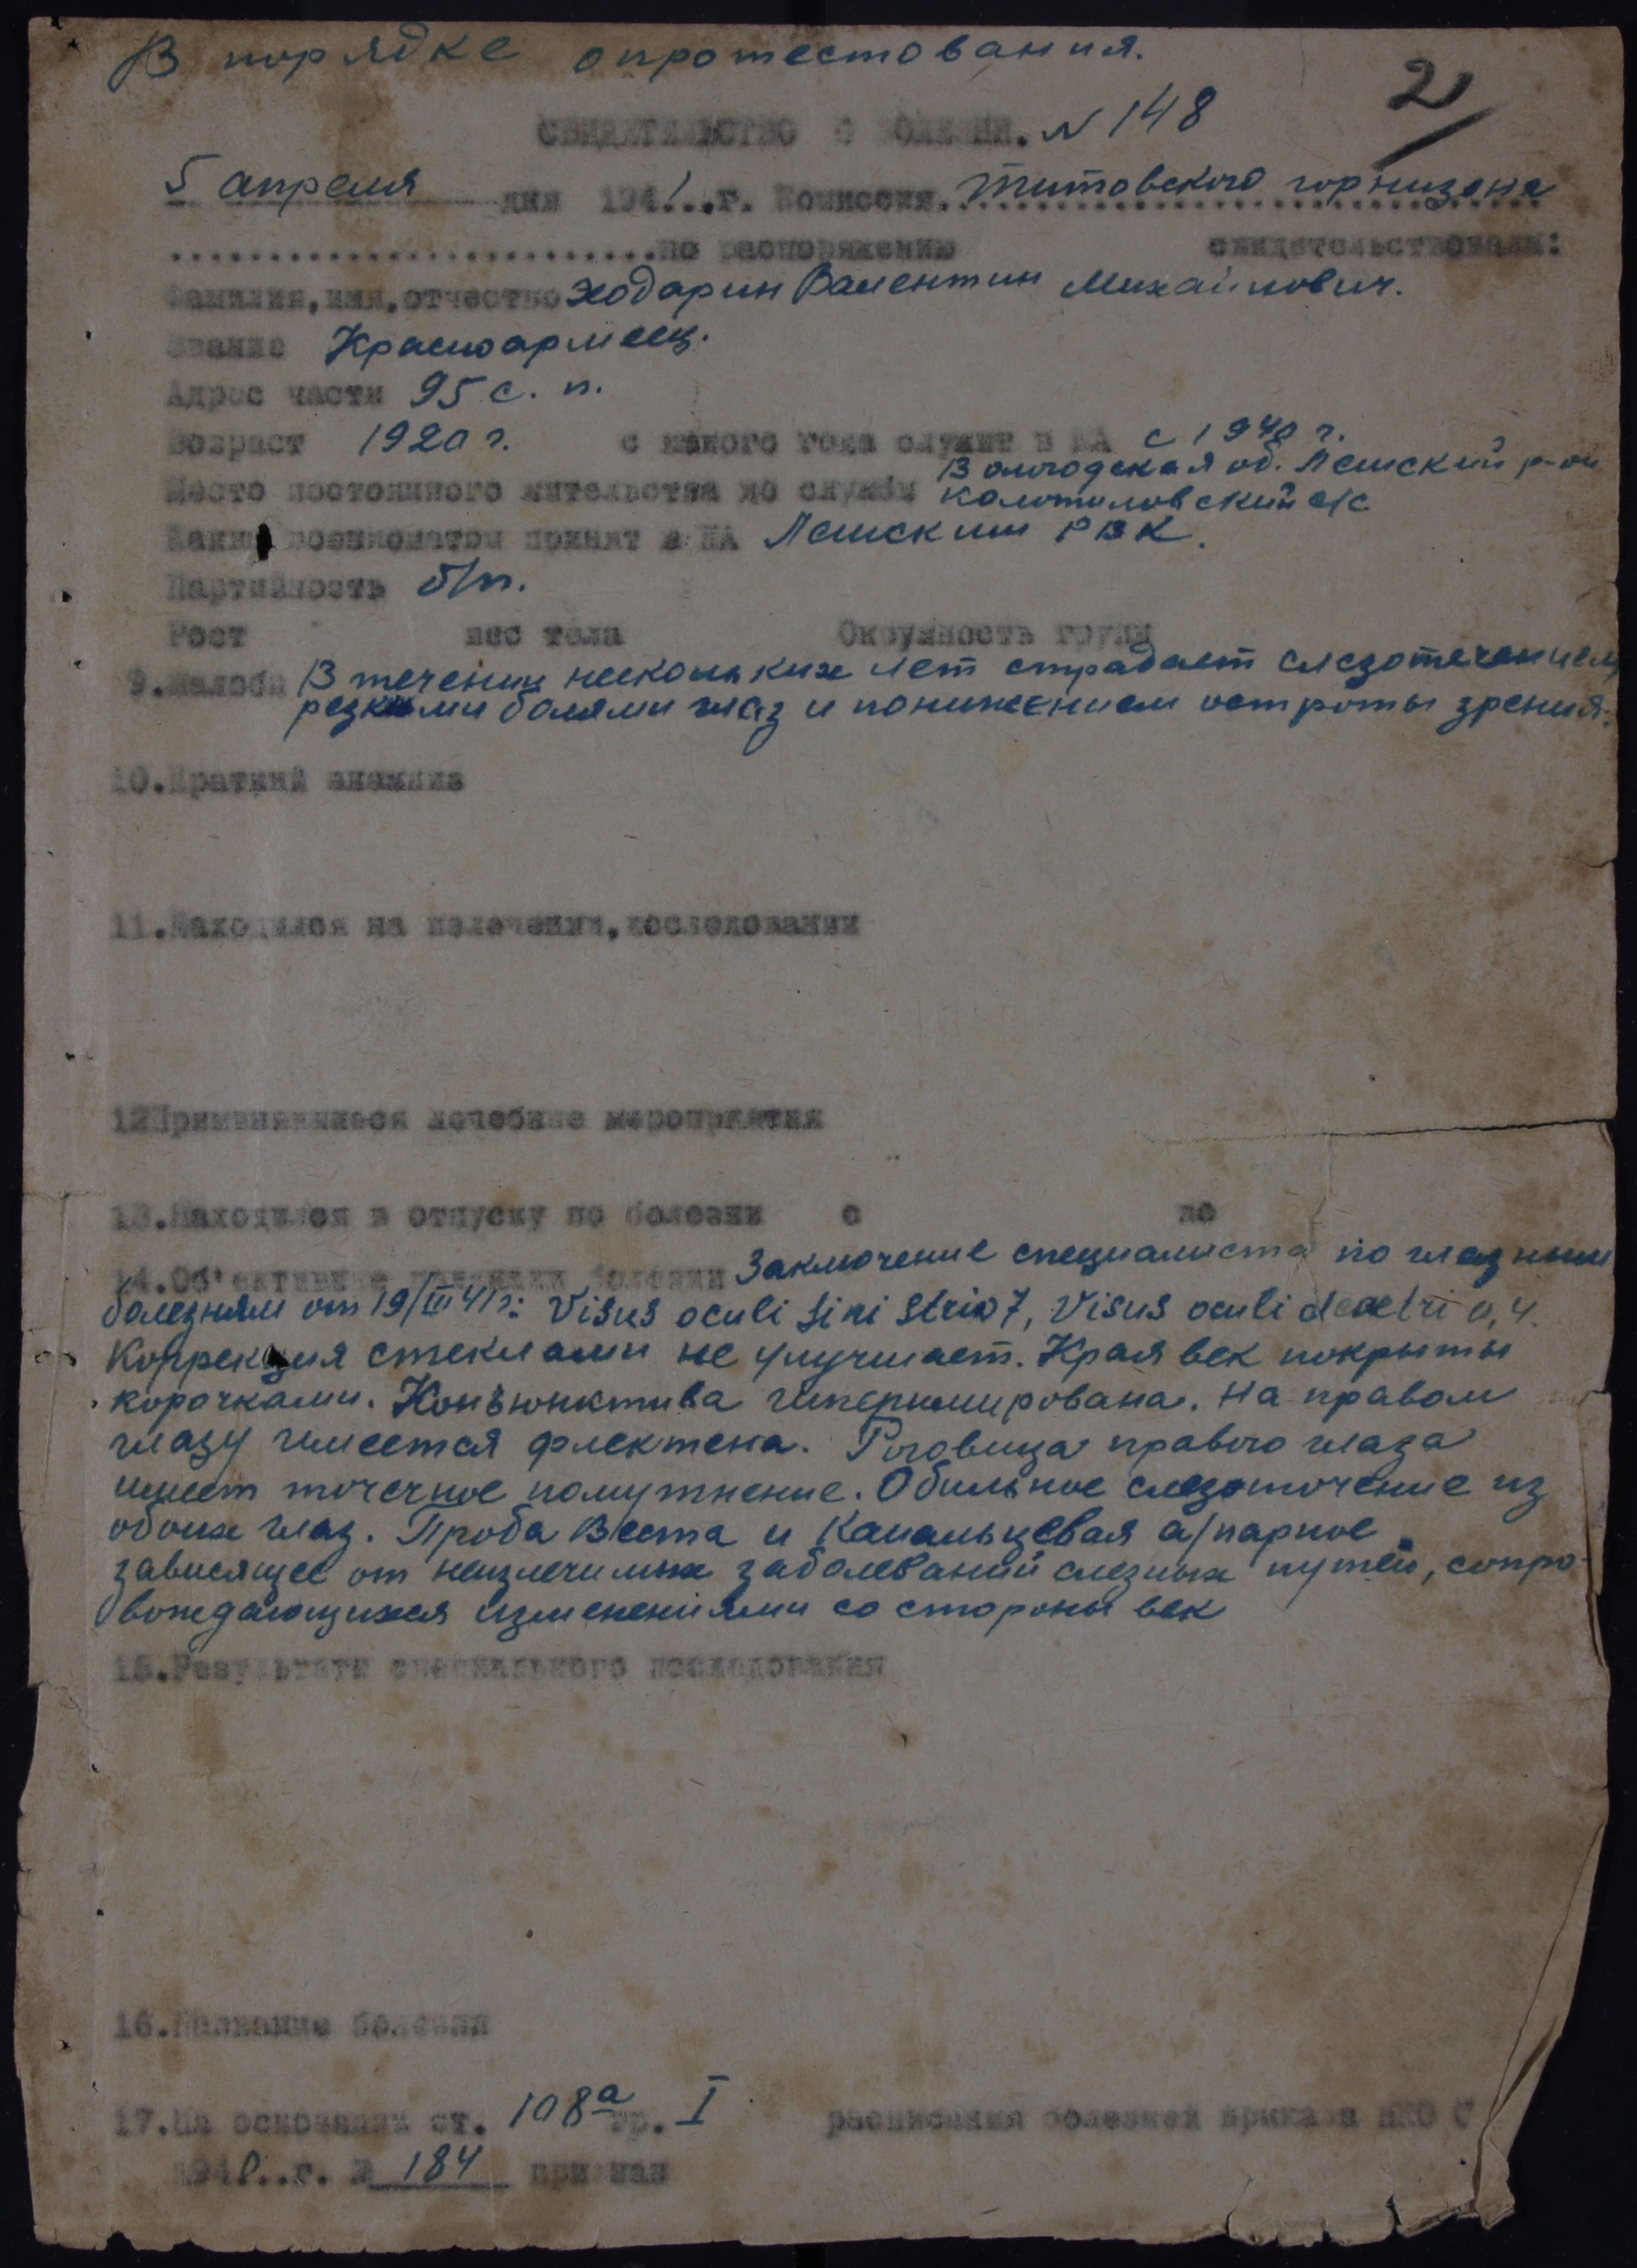 В порядке опротестования.
2
СВИДЕТЕЛЬСТВО О БОЛЕЗНИ. N 148
5 апреля дня 1941..г. Комиссия. Титовского горнизона
по распоряжению свидетельствовала:
Фамилия, имя, отчество Ходарин Валентин Михайлович.
Звание Красноармеец.
Адрес части 95 с. п.
Возраст 1920 г. с какого года служит в КА с 1940 г.
Вологодская об. Лешский р-он
Место постоянного жительства до службы
Колотиловский с/с
Каким военкоматом принят в КА Лешским РВК.
Партийность б/п.
Рост вес тела Окружность груди
9. Жалобы В течении нескольких лет страдает слезотечением,
резкими болями глаз и понижением остроты зрения.
10. Краткий анамниз
11. Находился на излечении, исследовании
12 Применявшиеся лечебные мероприятия
13. Находился в отпуску по болезни с до
14. Об'ективные признаки болезни Заключение специалиста по глазным
болезням от 19/III 41 г: Visus oculi sinistri 0,7, Visus oculi dextri 0,4.
Коррекция стеклами не улучшает. Края век покрыты
корочками. Конъюнктива гиперимирована. На правом
глазу имеется флектена. Роговица правого глаза
имеет точечное помутнение. Обильное слезоточение из
обоих глаз. Проба Веста и Канальцевая а/парное
зависящее от неизлечимых заболеваний слезных путей, сопро-
вождающихся изменениями со стороны век
15. Результаты специального исследования
16. Название болезни
17. На основании ст. 108а гр. I расписания болезней приказа НКО С
1940..г. № 184 признан